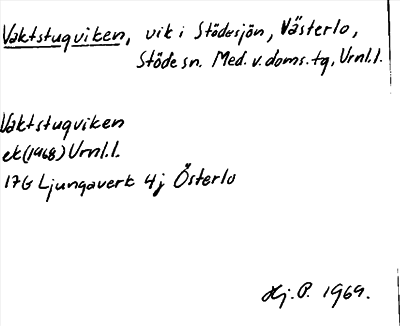 Vaktstugviken, vik i Stödesjön, Västerlo,
Stöde sn. Med. v. doms. tg, Urnl. l.
Vaktstugviken
ek (1968) Urnl. l.
17G Ljungaverk 4j Österlo
Hj. P. 1969.